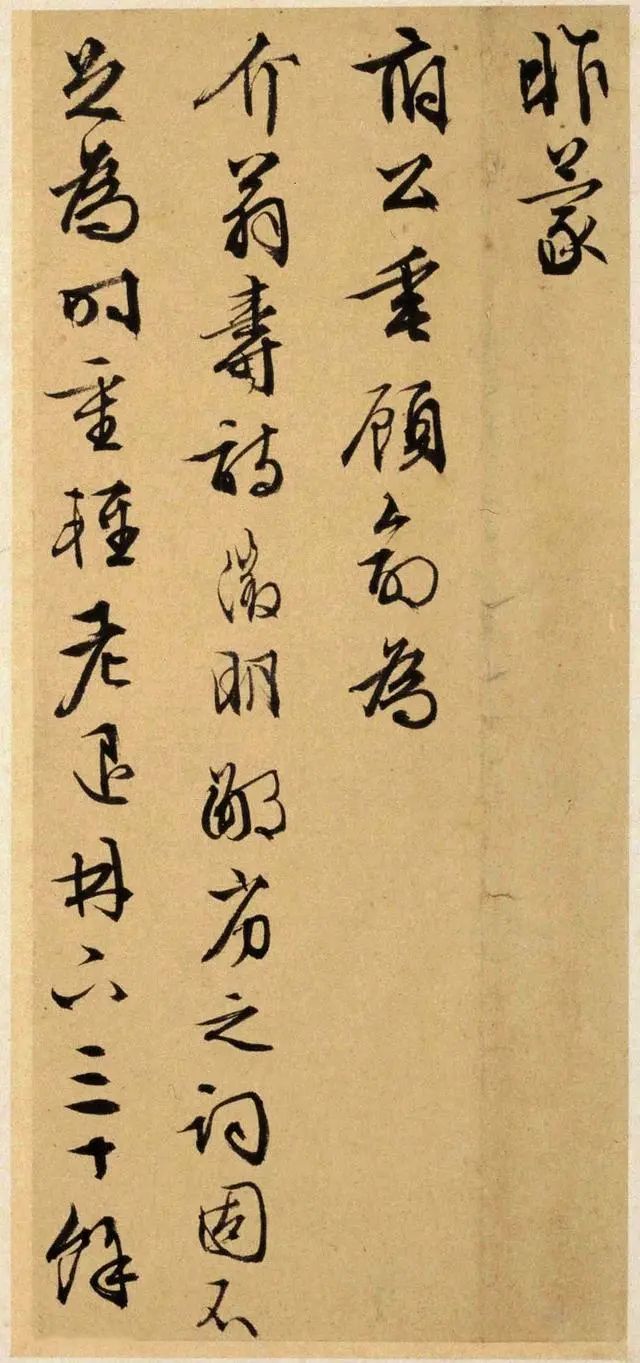 昨蒙
府公垂顧命為
介翁壽詩徵明鄙劣之詞固不
足為時重輕老退林下三十餘